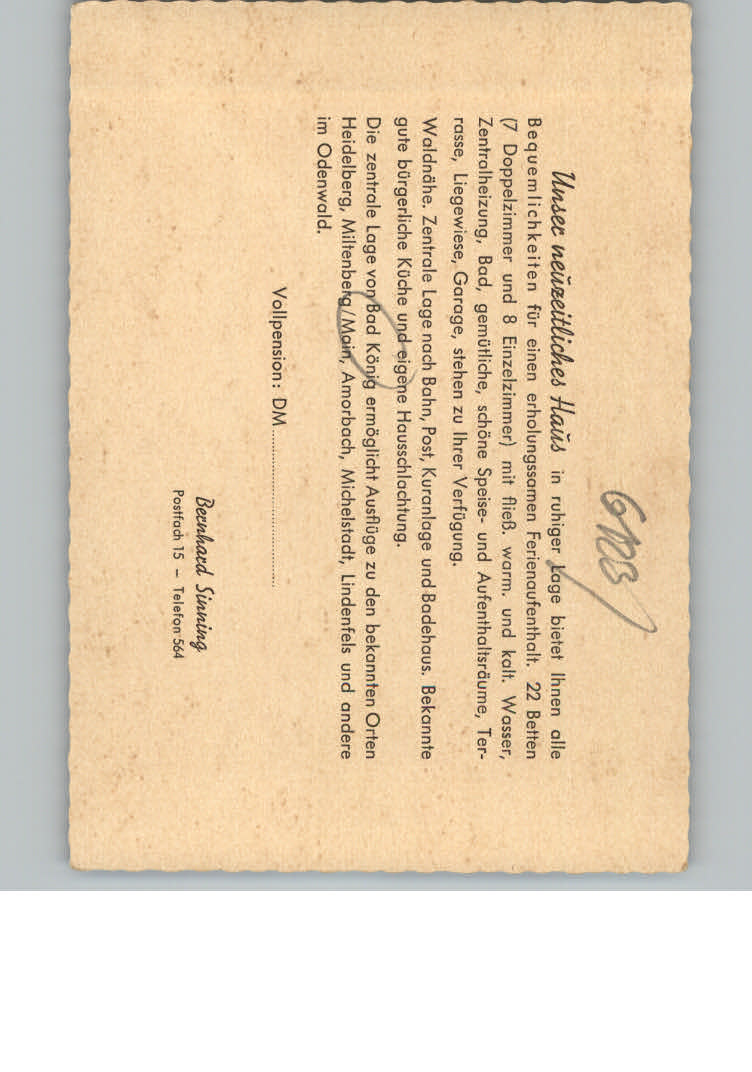 Unser neuzeitliches Haus in ruhiger Lage bietet Ihnen alle
Bequemlichkeiten für einen erholungssamen Ferienaufenthalt. 22 Betten
(7 Doppelzimmer und 8 Einzelzimmer) mit fließ. warm. und kalt. Wasser,
Zentralheizung, Bad, gemütliche, schöne Speise- und Aufenthaltsräume, Ter-
rasse, Liegewiese, Garage, stehen zu Ihrer Verfügung.
Waldnähe. Zentrale Lage nach Bahn, Post, Kuranlage und Badehaus. Bekannte
gute bürgerliche Küche und eigene Hausschlachtung.
Die zentrale Lage von Bad König ermöglicht Ausflüge zu den bekannten Orten
Heidelberg, Miltenberg/Main, Amorbach, Michelstadt, Lindenfels und andere
im Odenwald.
Vollpension: DM ........................................
Bernhard Sinning
Postfach 15 – Telefon 564